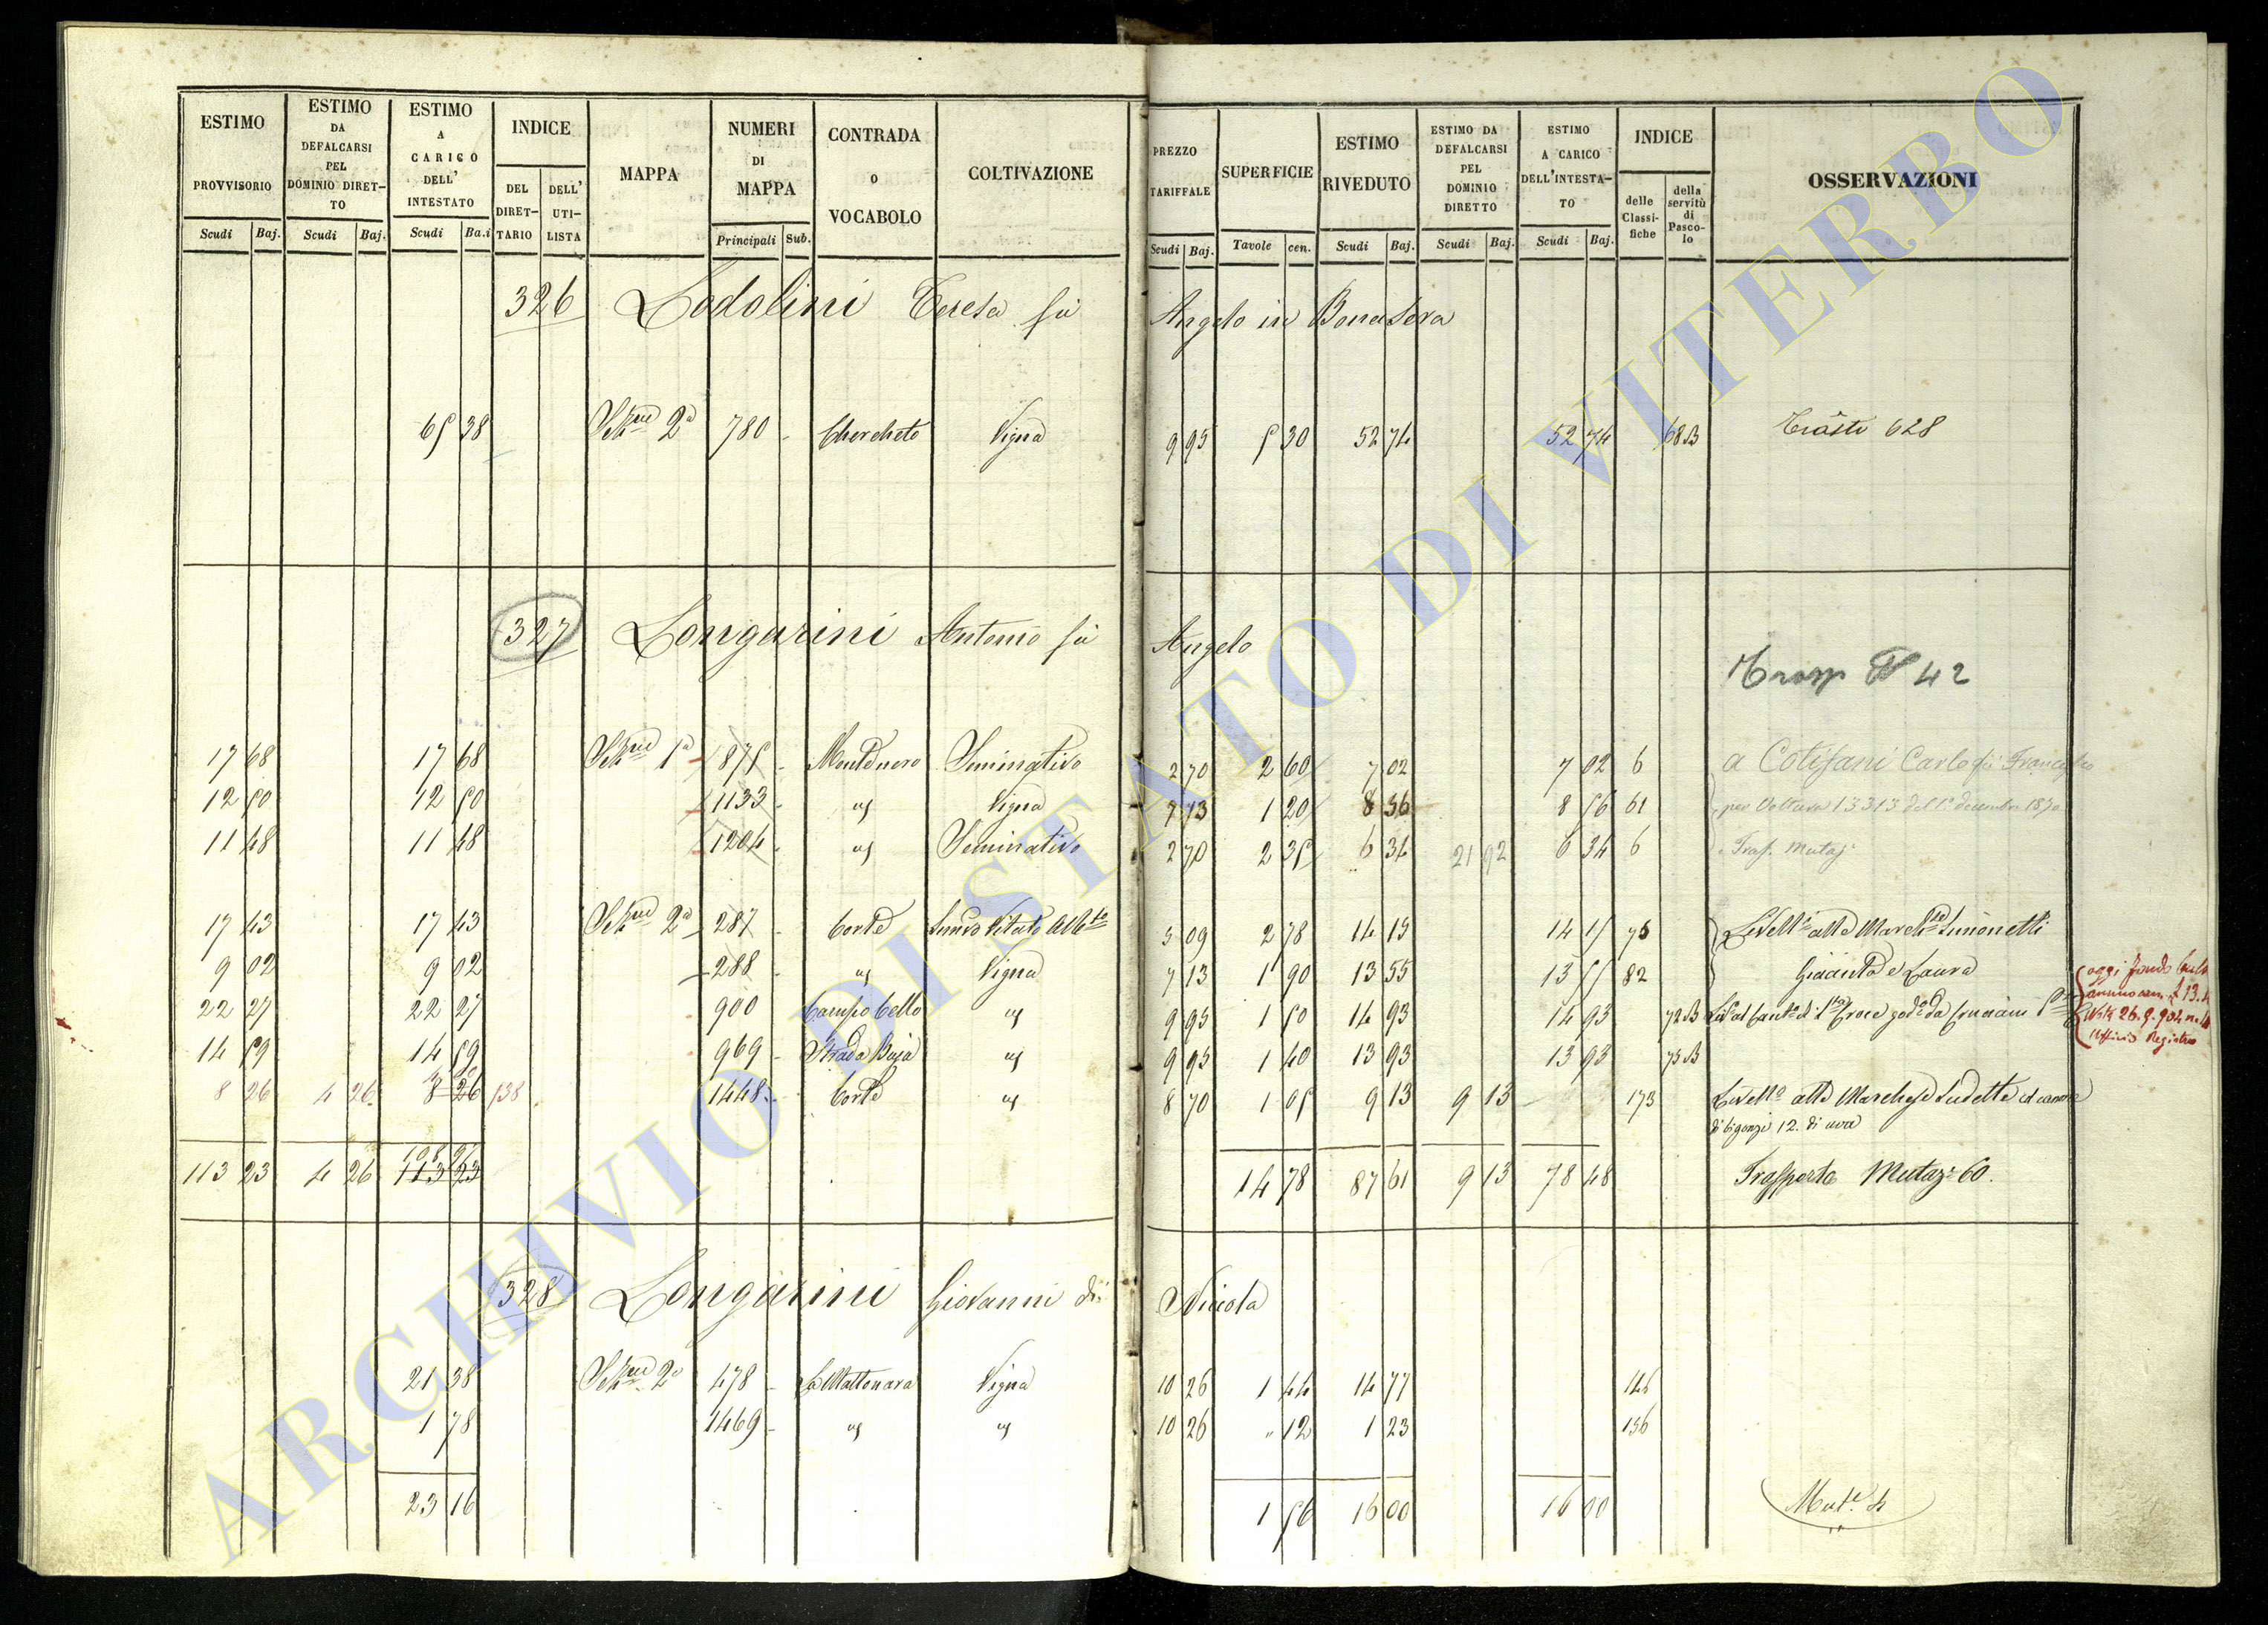 ESTIMO PROVVISORIO Scudi Baj.
ESTIMO DA DEFALCARSI PEL DOMINIO DIRET-TO Scudi Baj.
ESTIMO A CARICO DELL' INTESTATO Scudi Ba.i
INDICE DEL DIRET-TARIO DELL' UTI-LISTA
MAPPA
NUMERI DI MAPPA Principali Sub.
CONTRADA O VOCABOLO
COLTIVAZIONE
PREZZO TARIFFALE Scudi Baj.
SUPERFICIE Tavole cen.
ESTIMO RIVEDUTO Scudi Baj.
ESTIMO DA DEFALCARSI PEL DOMINIO DIRETTO Scudi Baj.
ESTIMO A CARICO DELL'INTESTA-TO Scudi Baj.
INDICE delle Classi-fiche della servitù di Pasco-lo
OSSERVAZIONI
326 Lodolini Teresa fù Angelo in Bonasera
65 38 2a 780 - Chercheto Vigna 9 95 5 30 52 74 52 74 68 B 628
327 Longarini Antonio fù Angelo
42
17 68 17 68 1a 875 - Montenero Seminativo 2 70 2 60 7 02 7 02 6 a Cotisani Carlo fù Francesco
12 50 12 50 1133 - Vigna 7 13 1 20 8 56 8 56 61 per Voltura 13313 del 1° decembre 1870
11 48 11 48 1204 - Seminativo 2 70 2 35 6 34 21 92 6 34 6
17 43 17 43 2a 287 - Corte Vitato 5 09 2 78 14 15 14 15 75 Simonetti
9 02 9 02 288 - Vigna 7 13 1 90 13 55 13 55 82 Giacinta e Laura
22 27 22 27 900 Campo Cello 9 95 1 50 14 93 14 93 72 B
oggi fondo
Ufficio Registro
14 59 14 59 969 - Strada Baja 9 95 1 40 13 93 13 93 75 B
8 26 4 26 8 26 138 1448 - Corte 8 70 1 05 9 13 9 13 173
di bigonzi 12. di uva
113 23 4 26 113 23 14 78 87 61 9 13 78 48 Trasporto Mutaz. 60.
328 Longarini Giovanni di Nicola
21 38 2a 478 - La Mattonara Vigna 10 26 1 44 14 77 146
1 78 1469 - 10 26 " 12 1 23 156
23 16 1 56 16 00 16 00 Mut.e 4
ARCHIVIO DI STATO DI VITERBO